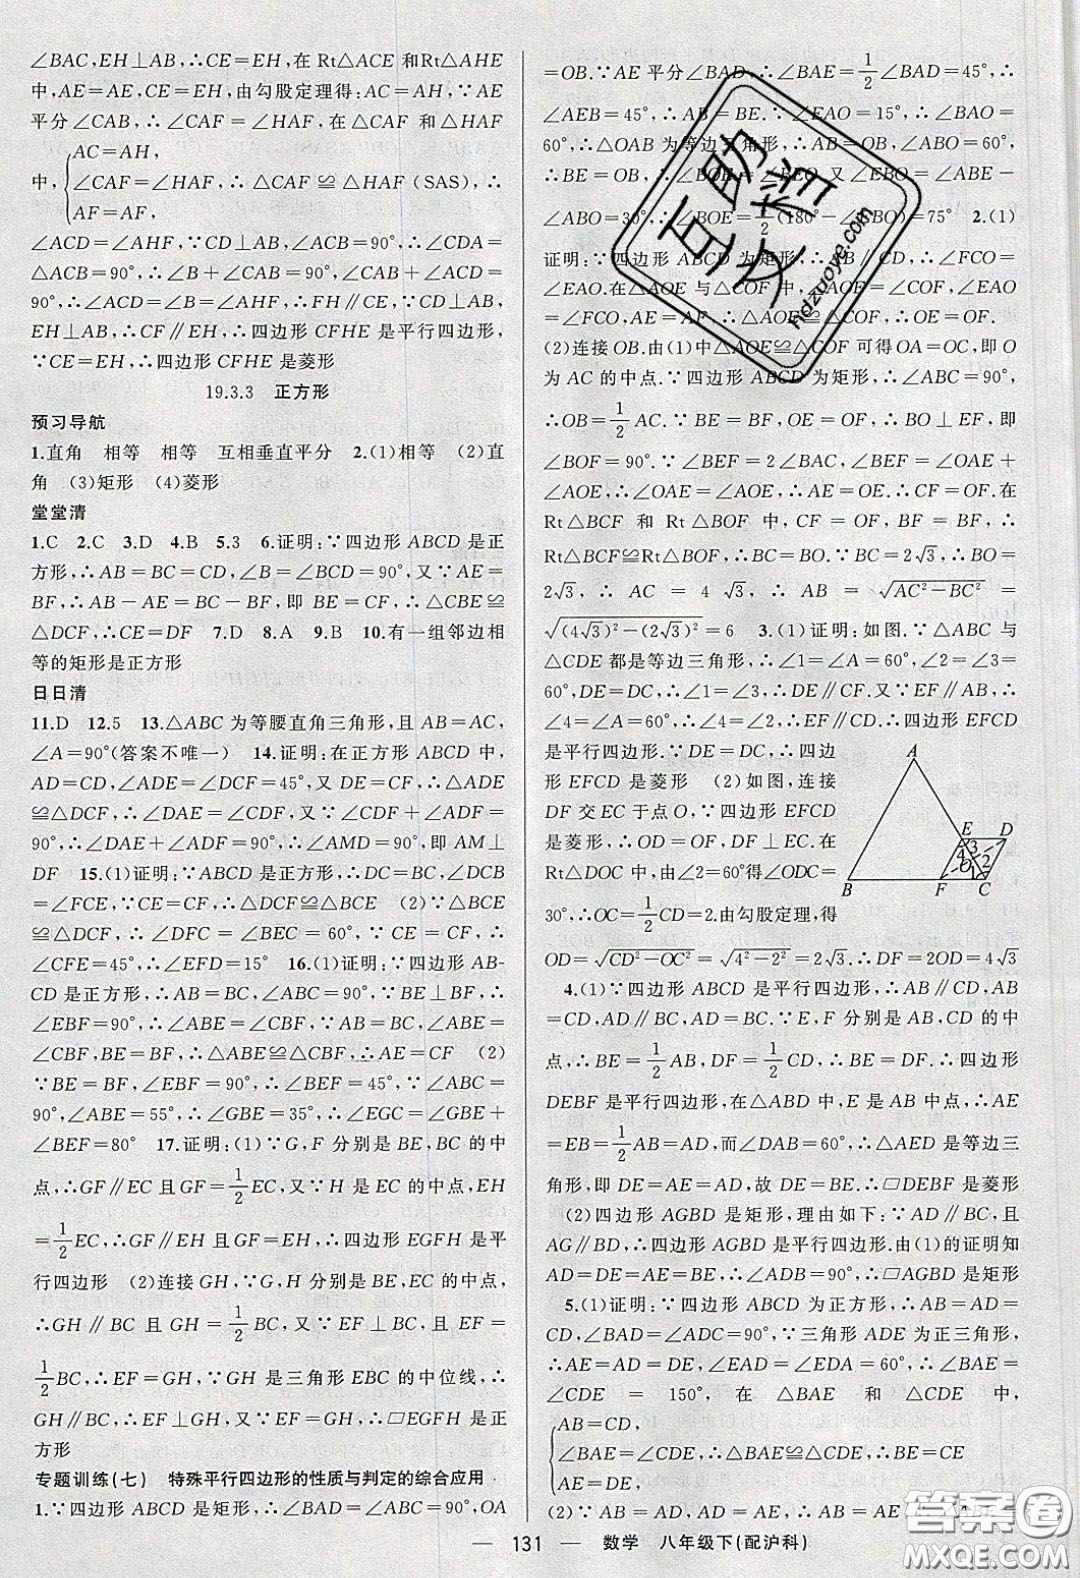 ∠BAC,EH⊥AB,∴CE=EH,在 Rt△ACE 和Rt△AHE
中,AE=AE,CE=EH,由勾股定理得:AC=AH,∵AE
平分∠CAB,∴∠CAF=∠HAF,在△CAF 和△HAF
AC=AH,
中,{∠CAF=∠HAF,∴△CAF≌△HAF(SAS),∴
AF=AF,
∠ACD=∠AHF,∵CD⊥AB,∠ACB=90°,∴∠CDA=
∠ACB=90°,∴∠B+∠CAB=90°,∠CAB+∠ACD=
90°,∴∠ACD=∠B=∠AHF,∴FH∥CE,∵CD⊥AB,
EH⊥AB,∴CF∥EH,∴四边形 CFHE 是平行四边形,
∵CE=EH,∴四边形 CFHE 是菱形
19.3.3 正方形
预习导航
1.直角 相等 相等 互相垂直平分 2.(1)相等 (2)直
角 (3)矩形 (4)菱形
堂堂清
1.C 2.C 3.D 4.B 5.3 6.证明:∵四边形 ABCD 是正
方形,∴AB=BC=CD,∠B=∠BCD=90°,又∵AE=
BF,∴AB-AE=BC-BF,即 BE=CF,∴△CBE≌
△DCF,∴CE=DF 7.D 8.A 9.B 10.有一组邻边相
等的矩形是正方形
日日清
11.D 12.5 13.△ABC 为等腰直角三角形,且 AB=AC,
∠A=90°(答案不唯一) 14.证明:在正方形 ABCD 中,
AD=CD,∠ADE=∠DCF=45°,又 DE=CF,∴△ADE
≌△DCF,∴∠DAE=∠CDF,又∵∠CDF+∠ADF=
90°,∴∠DAE+∠ADF=90°,∴∠AMD=90°,即 AM⊥
DF 15.(1)证明:∵ABCD 是正方形,∴DC=BC,∠DCB
=∠FCE,∵CE=CF,∴△DCF≌△BCE (2)∵△BCE
≌△DCF,∴∠DFC=∠BEC=60°,∵CE=CF,∴
∠CFE=45°,∴∠EFD=15° 16.(1)证明:∵四边形 AB-
CD 是正方形,∴AB=BC,∠ABC=90°,∵BE⊥BF,∴
∠EBF=90°,∴∠ABE=∠CBF,∵AB=BC,∠ABE=
∠CBF,BE=BF,∴△ABE≌△CBF,∴AE=CF (2)
∵BE=BF,∠EBF=90°,∴∠BEF=45°,∵∠ABC=
90°,∠ABE=55°,∴∠GBE=35°,∴∠EGC=∠GBE+
∠BEF=80° 17.证明:(1)∵G,F 分别是 BE,BC 的中
点,∴GF∥EC 且 GF=1/2EC,又∵H 是 EC 的中点,EH
=1/2EC,∴GF∥EH 且 GF=EH,∴四边形 EGFH 是平
行四边形 (2)连接 GH,∵G,H 分别是 BE,EC 的中点,
∴GH∥BC 且 GH=1/2BC,又∵EF⊥BC,且 EF=
1/2BC,∴EF=GH,∵GH 是三角形 EBC 的中位线,∴
GH∥BC,∴EF⊥GH,又∵EF=GH,∴□EGFH 是正
方形
专题训练(七) 特殊平行四边形的性质与判定的综合应用
1.∵四边形 ABCD 是矩形,∴∠BAD=∠ABC=90°,OA
=OB.∵AE 平分∠BAD,∴∠BAE=1/2∠BAD=45°,∴
∠AEB=45°,∴AB=BE.∵ ,∴∠BAO=
60°,∴△OAB 为等边三角形,∴∠ABO=60°,OB=AB,
∴BE=OB,∴∠BOE=∠BEO.又∠EBO=∠ABE-
∠ABO=30°,∴∠BOE=1/2(180°-∠EBO)=75° 2.(1)
证明:∵四边形 ABCD 为矩形,∴ ,∴∠FCO=
∠EAO.在△AOE 与△COF 中,∵∠EAO
=∠FCO,AE=CF,∴△AOE≌△COF,∴OE=OF.
(2)连接 OB.由(1)中△AOE≌△COF 可得 OA=OC,即 O
为 AC 的中点.∵四边形 ABCD 为矩形,∴∠ABC=90°,
∴OB=1/2AC.又∵BE=BF,OE=OF,∴BO⊥EF,即
∠BOF=90°.∵∠BEF=2∠BAC,∠BEF=∠OAE+
∠AOE,∴∠OAE=∠AOE,∴AE=OE.∴CF=OF.在
Rt△BCF 和 Rt△BOF 中,CF=OF,BF=BF,∴
Rt△BCF≌Rt△BOF,∴BC=BO.∵BC=2√3,∴BO=
2√3,∴AC=4√3,∴AB=√(AC²-BC²)=
√((4√3)²-(2√3)²)=6 3.(1)证明:如图.∵△ABC 与
△CDE 都是等边三角形,∴∠1=∠A=60°,∠2=∠3=
60°,∴∠1=∠A,∠1=∠3,∴DE∥CF.又∵EF∥AB,∴
∠4=∠A=60°,∴∠4=∠2,∴EF∥CD.∴四边形 EFCD
是平行四边形.∵DE=DC,∴四边
形 EFCD 是菱形 (2)如图,连接
DF 交 EC 于点 O,∵四边形 EFCD
是菱形,∴OD=OF,DF⊥EC.在
Rt△DOC 中,由∠2=60°得∠ODC=
30°,∴OC=1/2CD=2.由勾股定理,得
OD=√(CD²-OC²)=√(4²-2²)=2√3.∴DF=2OD=4√3
A
E D
4 3 2 1 O
B F C
4.(1)∵四边形 ABCD 是平行四边形,∴AB∥CD,AB
=CD,AD∥BC,AD=BC.∵E,F 分别是 AB,CD 的中
点,∴BE=1/2AB,DF=1/2CD,∴BE=DF.∴四边形
DEBF 是平行四边形,在△ABD 中,E 是 AB 中点,∴AE
=EB=1/2AB=AD,而∠DAB=60°,∴△AED 是等边三
角形,即 DE=AE=AD,故 DE=BE.∴□DEBF 是菱形
(2)四边形 AGBD 是矩形,理由如下:∵AD∥BC,且
AG∥BD,∴四边形 AGBD 是平行四边形.由(1)的证明知
AD=DE=AE=BE,∴∠ADB=90°,∴□AGBD 是矩形
5.(1)证明:∵四边形 ABCD 为正方形,∴AB=AD=
CD,∠BAD=∠ADC=90°,∵三角形 ADE 为正三角形,
∴AE=AD=DE,∠EAD=∠EDA=60°,∴∠BAE=
∠CDE=150°,在△BAE 和△CDE 中,
AB=CD,
{∠BAE=∠CDE,∴△BAE≌△CDE,∴BE=CE
AE=DE,
(2)∵AB=AD,AD=AE,∴AB=AE,
— 131 — 数学 八年级下(配沪科)
互助作文
hdzuoye.com
答案圈
MXQE.COM